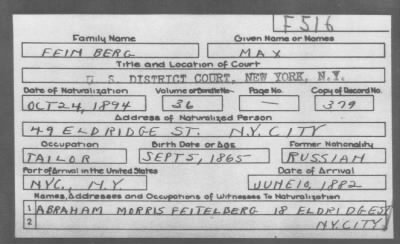 F516
Family Name Given Name or Names
FEINBERG MAX
Title and Location of Court
U. S. DISTRICT COURT, NEW YORK, N.Y.
Date of Naturalization Volume or Bundle No. Page No. Copy of Record No.
OCT 24, 1894 36 — 379
Address of Naturalized Person
49 ELDRIDGE ST. N.Y. CITY
Occupation Birth Date or Age Former Nationality
TAILOR SEPT 5, 1865 RUSSIAN
Port of Arrival in the United States Date of Arrival
NYC., N.Y. JUNE 10, 1882
Names, Addresses and Occupations of Witnesses To Naturalization
1 ABRAHAM MORRIS FEITELBERG 18 ELDRIDGE ST
2 N.Y. CITY